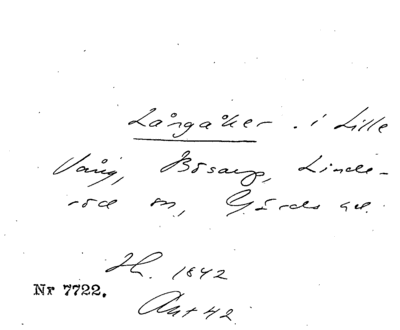 Långåker . i Lille
Vång, Bösarp, Linde-
röd sn, Gärds hd.
Hh. 1842
Nr 7722.
Akt 42